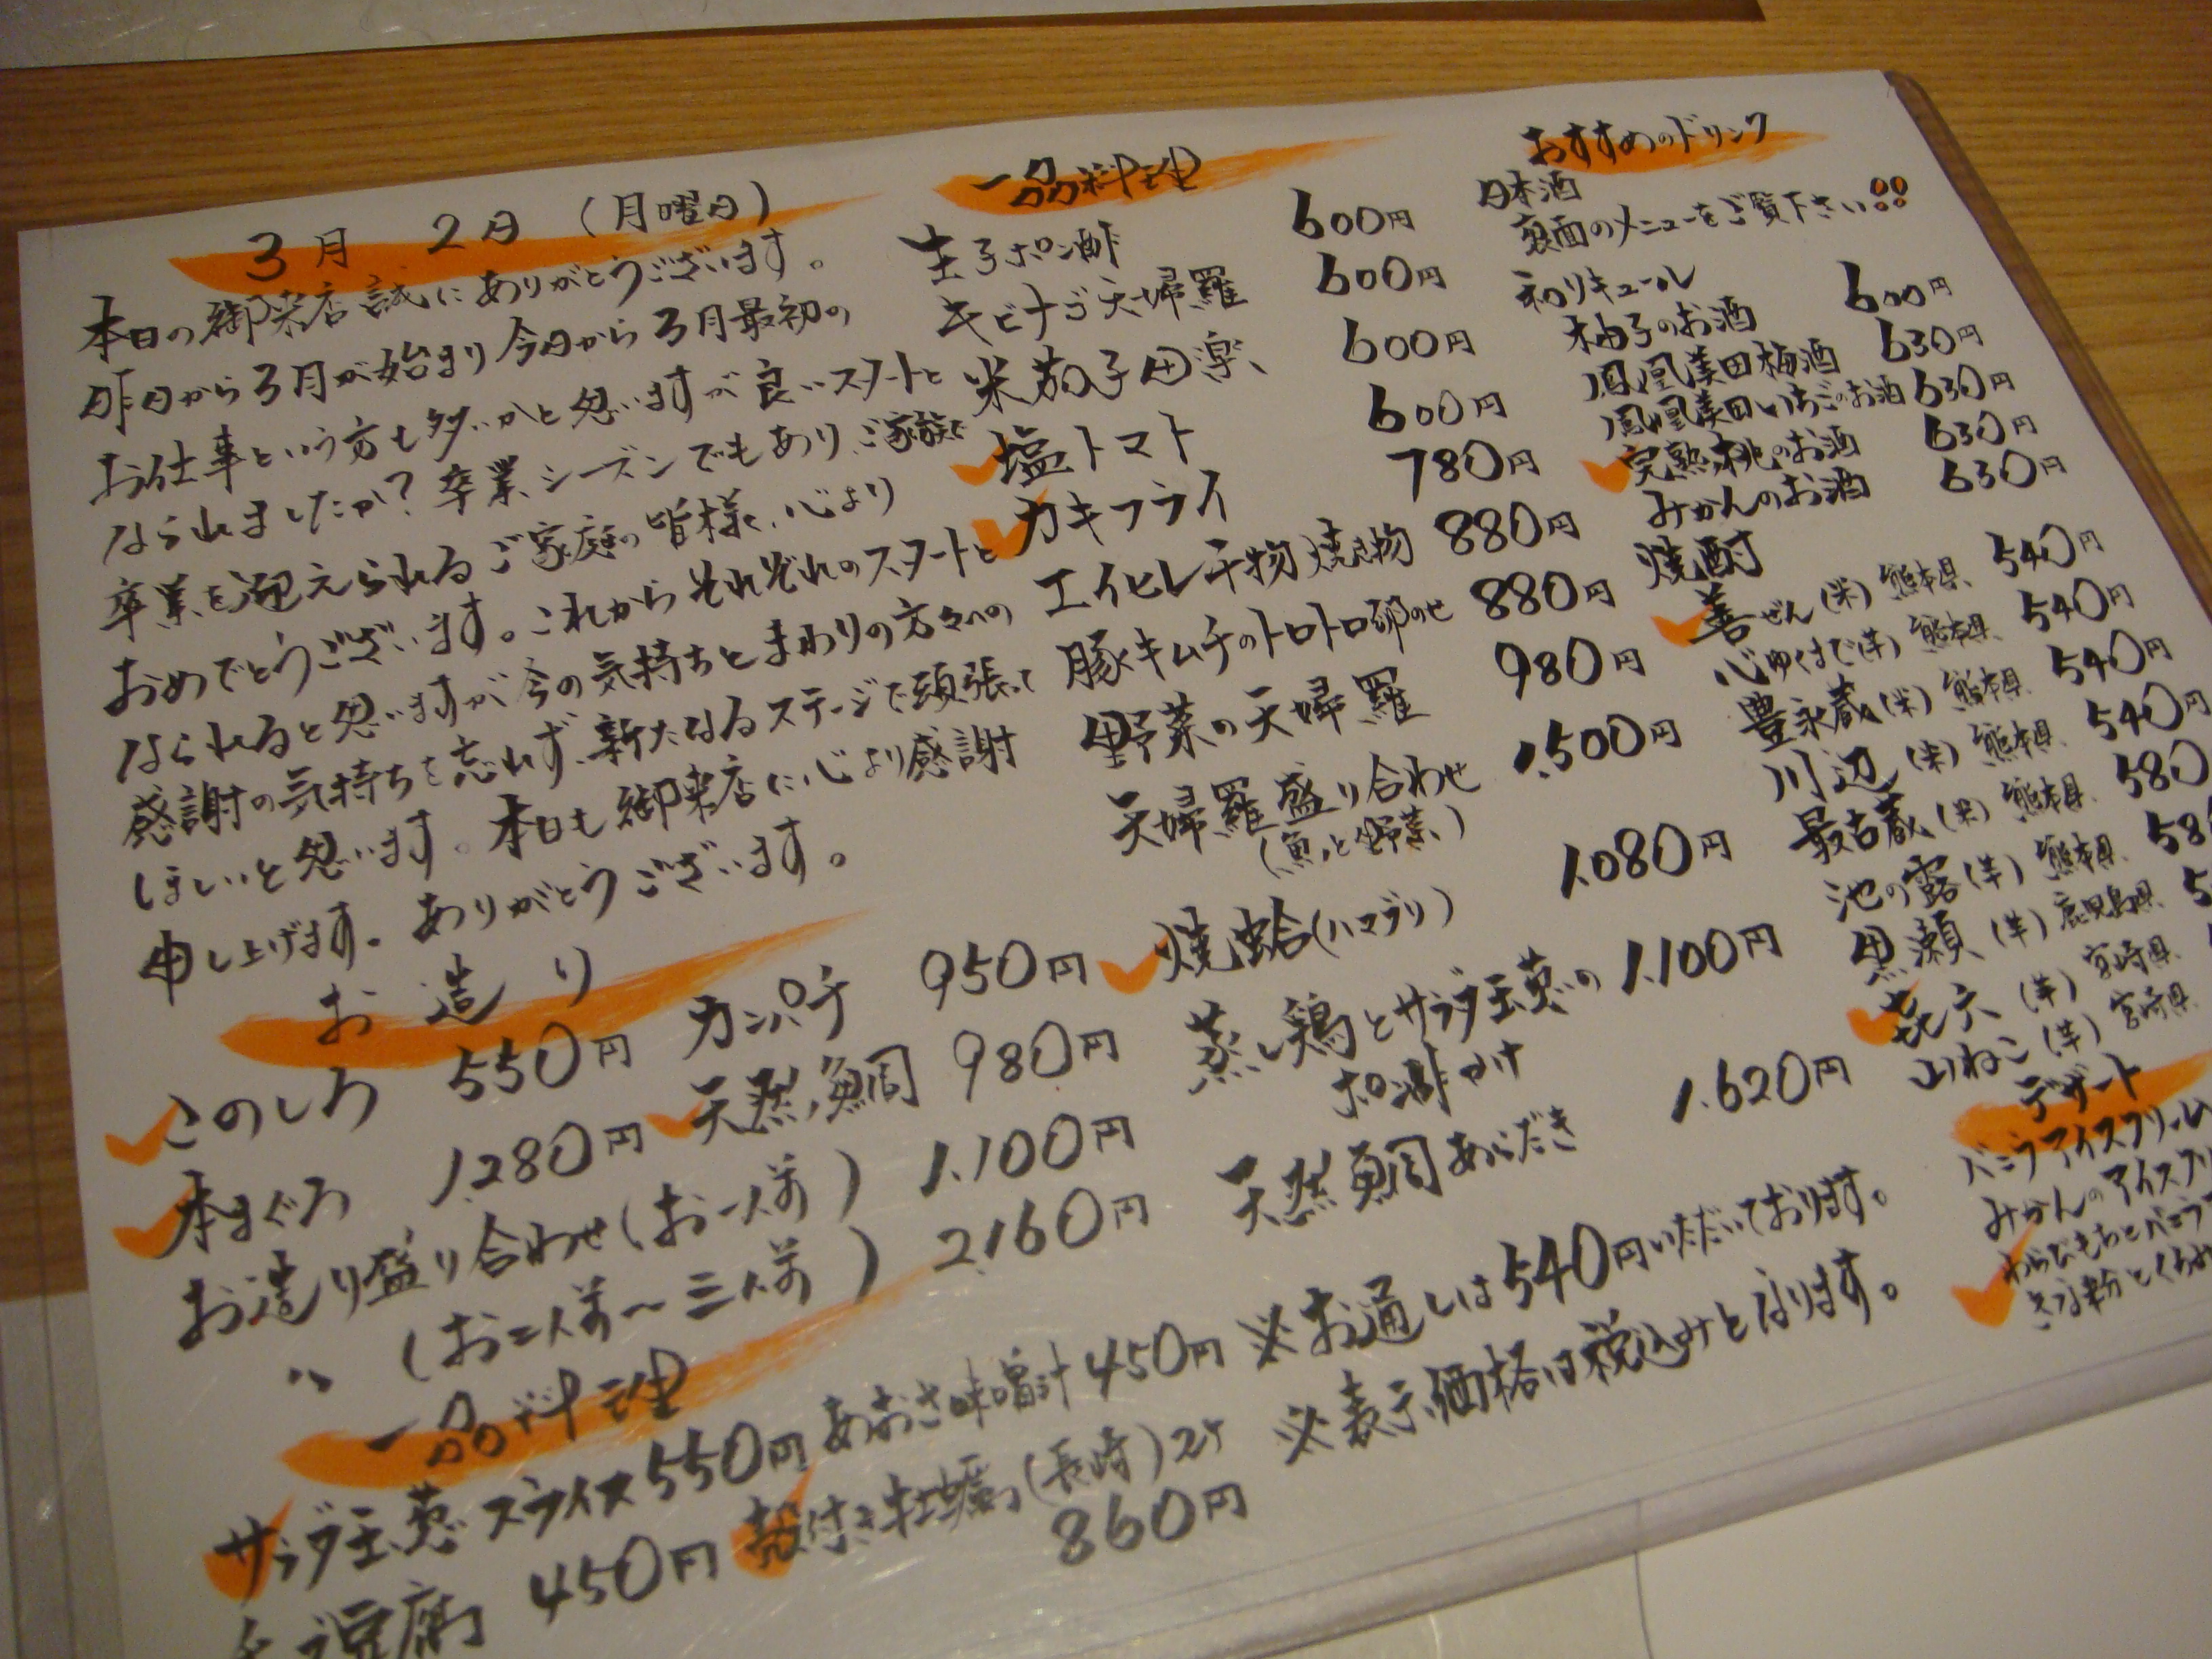 3月 2日 (月曜日)
本日の御来店誠にありがとうございます。
昨日から3月が始まり今日から3月最初の
お仕事という方も多いかと思いますが良いスタートと
なられましたか?卒業シーズンでもあり、ご家族で
卒業を迎えられるご家庭の皆様、心より
おめでとうございます。これからそれぞれのスタートと
なられると思いますが今の気持ちとまわりの方々への
感謝の気持ちを忘れず、新たなるステージで頑張って
ほしいと思います。本日も御来店に心より感謝
申し上げます。ありがとうございます。
お造り
このしろ 550円 カンパチ 950円
本まぐろ 1,280円 天然鯛 980円
お造り盛り合わせ(お一人前) 1,100円
〃 (お二人前〜三人前) 2,160円
一品料理
サラダ玉葱スライス 550円 あおさ味噌汁 450円
豆腐 450円 殻付き牡蠣(長崎)2ケ
860円
一品料理
生子ポン酢 600円
キビナゴ天婦羅 600円
米茄子田楽 600円
塩トマト 600円
カキフライ 780円
エイヒレ干物焼き物 880円
豚キムチのトロトロ卵のせ 880円
野菜の天婦羅 980円
天婦羅盛り合わせ 1,500円
(魚と野菜)
焼蛤(ハマグリ) 1,080円
蒸し鶏とサラダ玉葱の 1,100円
ポン酢かけ
天然鯛あらだき 1,620円
※お通しは540円いただいております。
※表示価格は税込みとなります。
おすすめのドリンク
日本酒
裏面のメニューをご覧下さい!!
和リキュール
柚子のお酒 600円
鳳凰美田梅酒 630円
鳳凰美田いちごのお酒 630円
完熟桃のお酒 630円
みかんのお酒 630円
焼酎
善ぜん(米) 熊本県 540円
心ゆくまで(芋) 熊本県 540円
豊永蔵(米) 熊本県 540円
川辺(米) 熊本県 540円
最古蔵(米) 熊本県 580
池の露(芋) 熊本県
黒瀬(芋) 鹿児島県
㐂六(芋) 宮崎県
山ねこ(芋) 宮崎県
デザート
バニラアイスクリーム
みかんのアイスクリ
わらびもちとバニラ
きな粉とくろみ